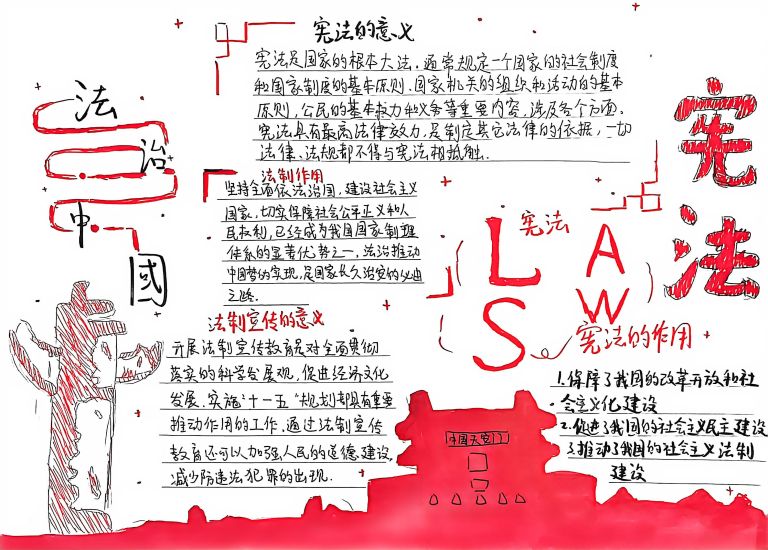 宪法的意义
宪法是国家的根本大法，通常规定一个国家的社会制度
和国家制度的基本原则、国家机关的组织和活动的基本
原则，公民的基本权力和义务等重要内容，涉及各个方面。
宪法具有最高法律效力，是制定其它法律的依据，一切
法律、法规都不得与宪法相抵触.
法
治
中
國
宪法
法制作用
坚持全面依法治国，建设社会主义
国家，切实保障社会公平正义和人
民权利，已经成为我国国家制
体系的显著优势之一，法治推动
中国梦的实现，是国家长久治安的必由
之路.
宪法
L A
S W
法制宣传的意义
开展法制宣传教育是对全面贯彻
落实的科学发展观，促进经济文化
发展，实施"十一五"规划都具有重要
推动作用的工作，通过法制宣传
教育还可以加强人民的道德建设，
减少防违法犯罪的出现.
宪法的作用
1.保障了我国的改革开放和社
会主义化建设
2.促进了我国的社会主义民主建设
3推动了我国的社会主义法制
建设
中国天安门